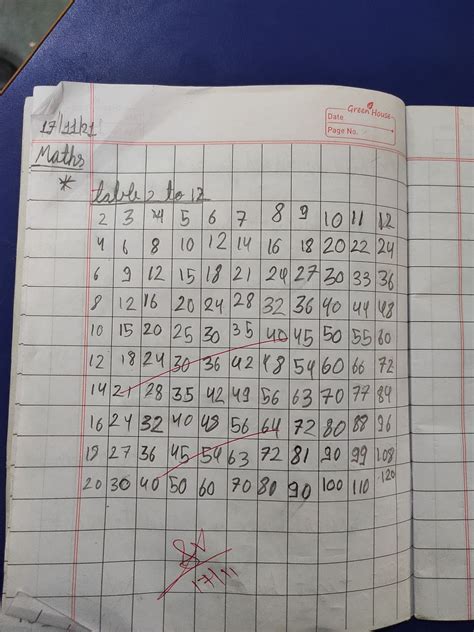 Green House
Date
Page No.
17/11/21
Maths
* table 2 to 12
2 3 4 5 6 7 8 9 10 11 12
4 6 8 10 12 14 16 18 20 22 24
6 9 12 15 18 21 24 27 30 33 36
8 12 16 20 24 28 32 36 40 44 48
10 15 20 25 30 35 40 45 50 55 60
12 18 24 30 36 42 48 54 60 66 72
14 21 28 35 42 49 56 63 70 77 84
16 24 32 40 48 56 64 72 80 88 96
18 27 36 45 54 63 72 81 90 99 108
20 30 40 50 60 70 80 90 100 110 120
17/11